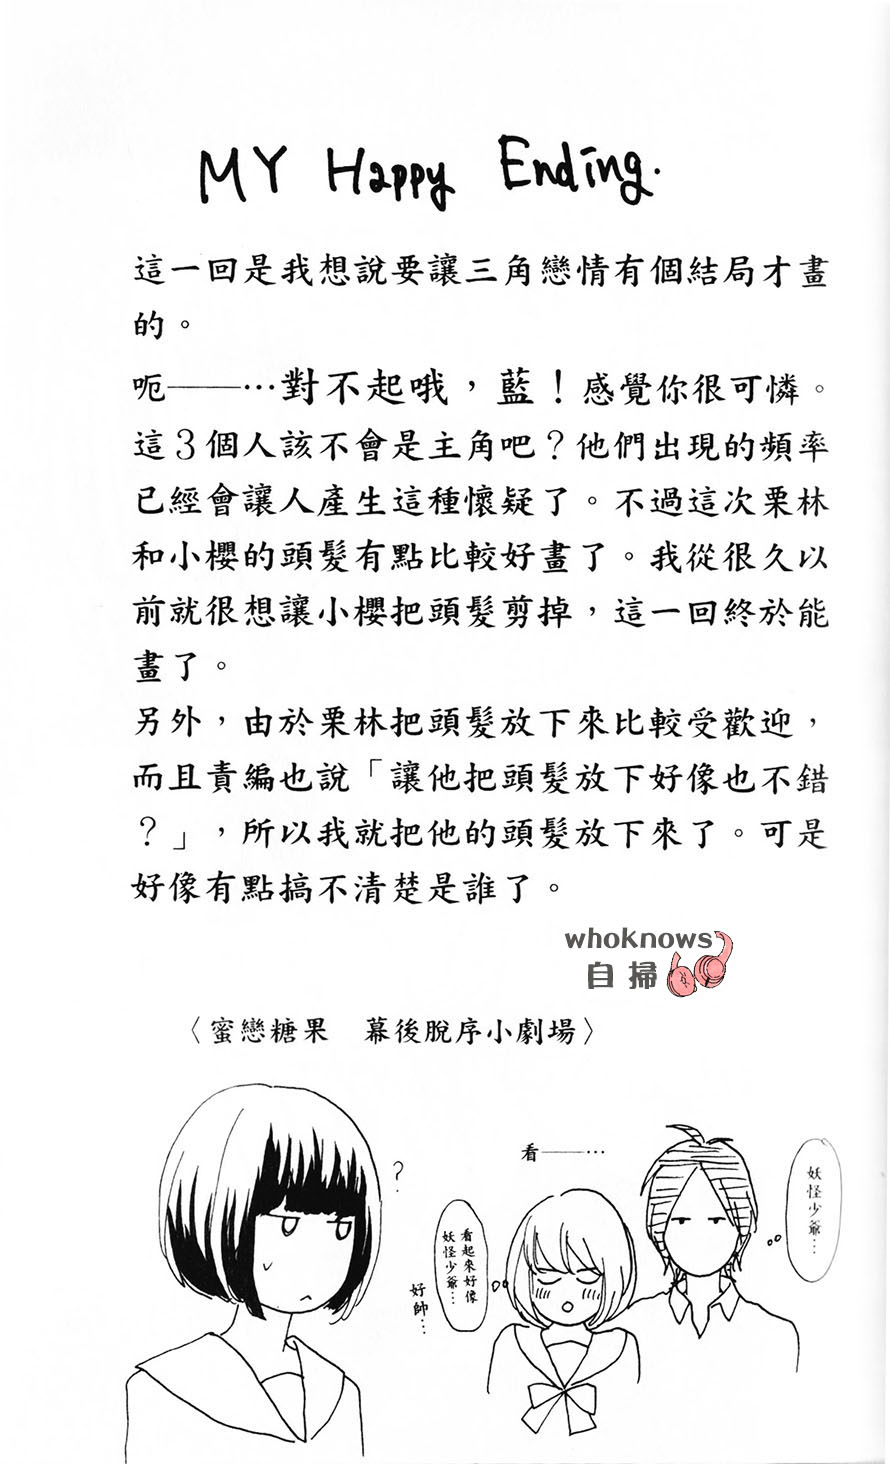 MY Happy Ending.
這一回是我想說要讓三角戀情有個結局才畫
的。
呃——…對不起哦，藍！感覺你很可憐。
這3個人該不會是主角吧？他們出現的頻率
已經會讓人產生這種懷疑了。不過這次栗林
和小櫻的頭髮有點比較好畫了。我從很久以
前就很想讓小櫻把頭髮剪掉，這一回終於能
畫了。
另外，由於栗林把頭髮放下來比較受歡迎，
而且責編也說「讓他把頭髮放下好像也不錯
？」，所以我就把他的頭髮放下來了。可是
好像有點搞不清楚是誰了。
whoknows
自掃
〈蜜戀糖果　幕後脫序小劇場〉
看——…
妖怪少爺…
?
看起來好像
妖怪少爺…
好帥…